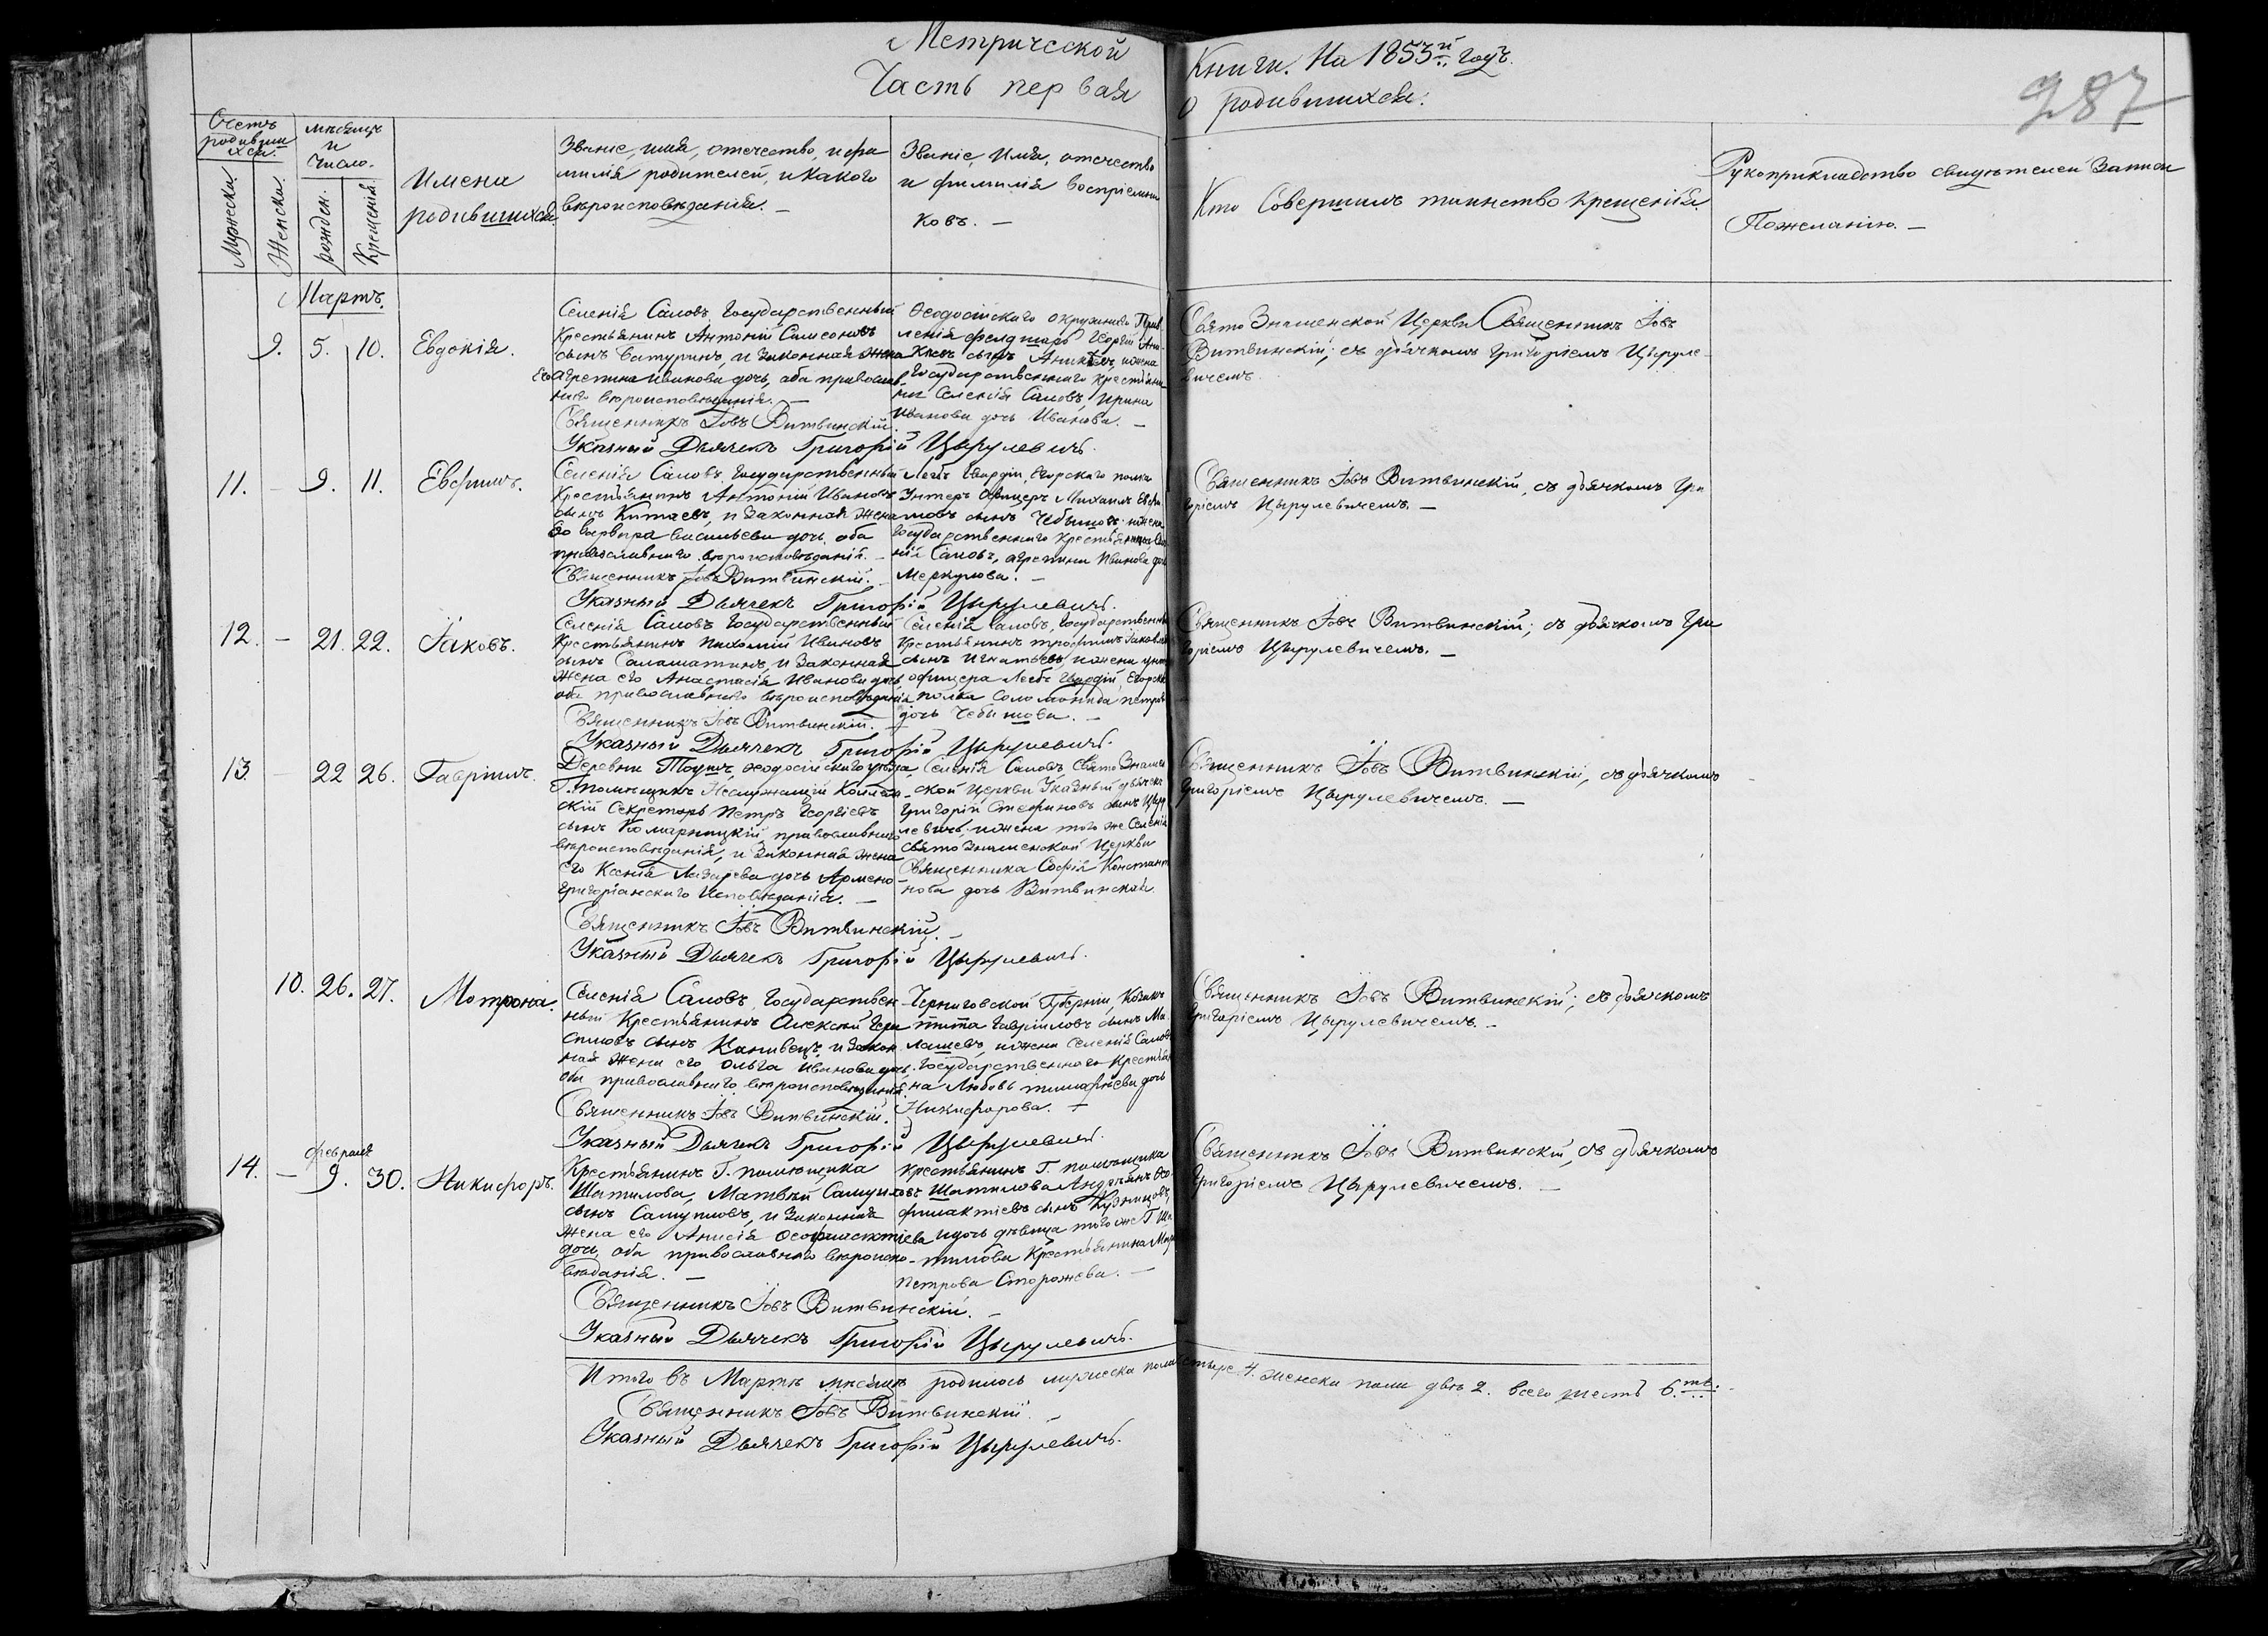 Метрической Книги. На 1853й. годъ.
Часть первая о родившихся.
287
Счетъ родившихся.
Мужеска.
Женска.
мѣсяцъ и число.
рожден.
Крещенія.
Имена
родившихся.
Званіе, имя, отечество, и фа
милія родителей, и какого
вѣроисповѣданія. —
Званіе, Имя, отечество
и фамилія воспріемни
ковъ. —
Кто Совершилъ таинство Крещенія.
Рукоприкладство свидѣтелей Записи
Пожеланію. —
Мартъ.
9. 5. 10. Евдокія.
Селенія Саловъ, Государственный
Крестьянинъ Антоній Симеоновъ
сынъ Батуринъ, и законная жена
его Агрепина Иванова дочь, оба православ
наго вѣроисповѣданія. —
Священникъ Іовъ Витвинскій.
Указный Дьячекъ Григорій Цырулевичъ.
Ѳеодосійскаго окружнаго
ленія фелдшаръ Георгій
сынъ
Государственнаго крестьяни
на Селенія Саловъ, Ирина
Иванова дочь Иванова. —
Свято Знаменской Церкви Священникъ Іовъ
Витвинскій; съ дьячкомъ Григоріемъ Цыруле-
вичемъ.
11. — 9. 11. Евфимъ.
Селенія Саловъ, Государственный
Крестьянинъ Антоній Ивановъ
сынъ Китаевъ, и Законная Жена
его Варвара Васильева дочь, оба
православнаго вѣроисповѣданія. —
Священникъ Іовъ Витвинскій. —
Указный Дьячекъ Григорій Цырулевичъ.
Лейбъ Гвардіи, Егорскаго полка
Унтеръ Офицеръ Михаилъ
сынъ
Государственнаго Крестьянина
Саловъ, Агрепина Иванова
Меркулова. —
Священникъ Іовъ Витвинскій, съ дьячкомъ Гри
горіемъ Цырулевичемъ. —
12. — 21. 22. Іаковъ.
Селенія Саловъ Государственный
Крестьянинъ Пахомій Ивановъ
сынъ Саламатинъ, и Законная
Жена его Анастасія Иванова дочь
оба православнаго вѣроисповѣданія
Священникъ Іовъ Витвинскій. —
Указный Дьячекъ Григорій Цырулевичъ.
Селенія Саловъ, Государственный
Крестьянинъ Трофимъ Іаковлевъ
сынъ Игнатьевъ, и жена
офицера Лейбъ Гвардіи
полка Соломонида
дочь
Священникъ Іовъ Витвинскій; съ дьячкомъ Гри
горіемъ Цырулевичемъ. —
13. 22 26. Гавріилъ.
Деревни Ѳеодосійскаго уѣзда
Г. Помѣщикъ Неслужащій
скій Секретарь Петръ Георгіевъ
сынъ Комарницкій православнаго
вѣроисповѣданія, и Законная жена
его Ксенія Лазарева дочь Армено
григоріанскаго Исповѣданія. —
Священникъ Іовъ Витвинскій. —
Указный Дьячекъ Григорій Цырулевичъ.
Селенія Саловъ Свято Знамен
ской Церкви Указный дьячекъ
Григорій Стефановъ сынъ Цыру
левичъ, и жена того же Селенія
Свято Знаменской Церкви
Священника Софія Констант
нова дочь Витвинская.
Священникъ Іовъ Витвинскій, съ дьячкомъ
Григоріемъ Цырулевичемъ. —
10. 26. 27. Мотрона.
Селенія Саловъ, Государствен
ный Крестьянинъ Алексѣй
сынъ и Закон
ная жена его Ольга Иванова дочь,
оба православнаго вѣроисповѣданія.
Священникъ Іовъ Витвинскій.
Указный Дьячекъ Григорій Цырулевичъ.
Черниговской Губерніи, Козакъ
Гавріиловъ сынъ Ма
и жена Селенія Саловъ
Государственнаго Крестьяни
на Любовь Тимофѣева дочь
Никифорова. —
Священникъ Іовъ Витвинскій; съ дьячкомъ
Григоріемъ Цырулевичемъ. —
Февраля
14. — 9. 30. Никифоръ.
Крестьянинъ Г. помѣщика
Шатилова, Матвѣй Самуиловъ
сынъ Самуиловъ, и Законная
Жена его Анисія Ѳеофилактіева
дочь, оба православнаго вѣроиспо-
вѣданія. —
Священникъ Іовъ Витвинскій. —
Указный Дьячекъ Григорій Цырулевичъ.
Крестьянинъ Г. помѣщика
Шатилова Андреянъ Ѳео
филактіевъ сынъ Кузнецовъ,
и дочь дѣвица того же Г. Ша
тилова Крестьянина
Петрова Сторожева. —
Священникъ Іовъ Витвинскій, съ дьячкомъ
Григоріемъ Цырулевичемъ. —
Итого въ Мартѣ мѣсяцѣ родилось мужеска пола четыре 4. женска пола двѣ 2. всего шесть 6.ть.
Священникъ Іовъ Витвинскій.
Указный Дьячекъ Григорій Цырулевичъ.